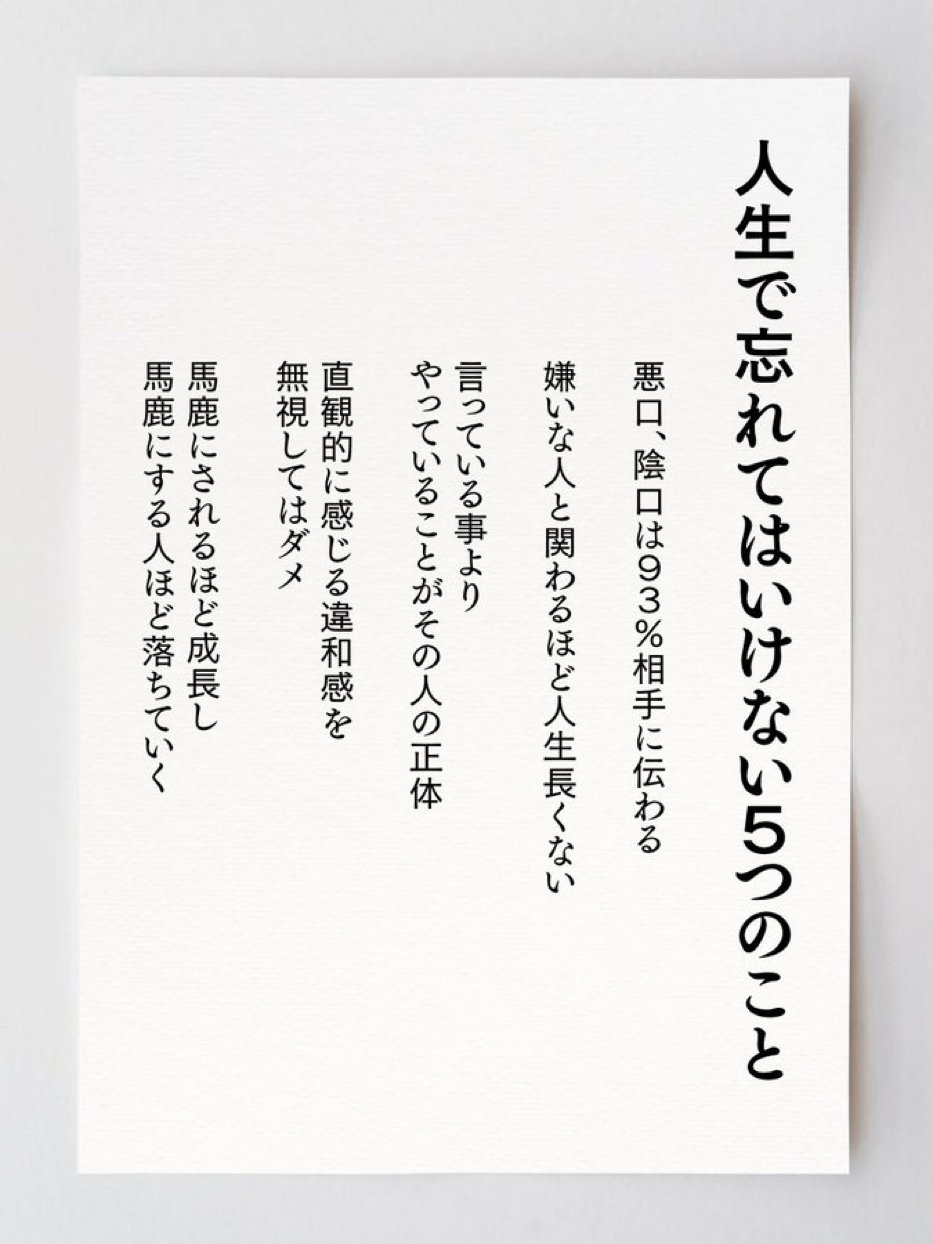 人生で忘れてはいけない5つのこと
悪口、陰口は93%相手に伝わる
嫌いな人と関わるほど人生長くない
言っている事より
やっていることがその人の正体
直観的に感じる違和感を
無視してはダメ
馬鹿にされるほど成長し
馬鹿にする人ほど落ちていく